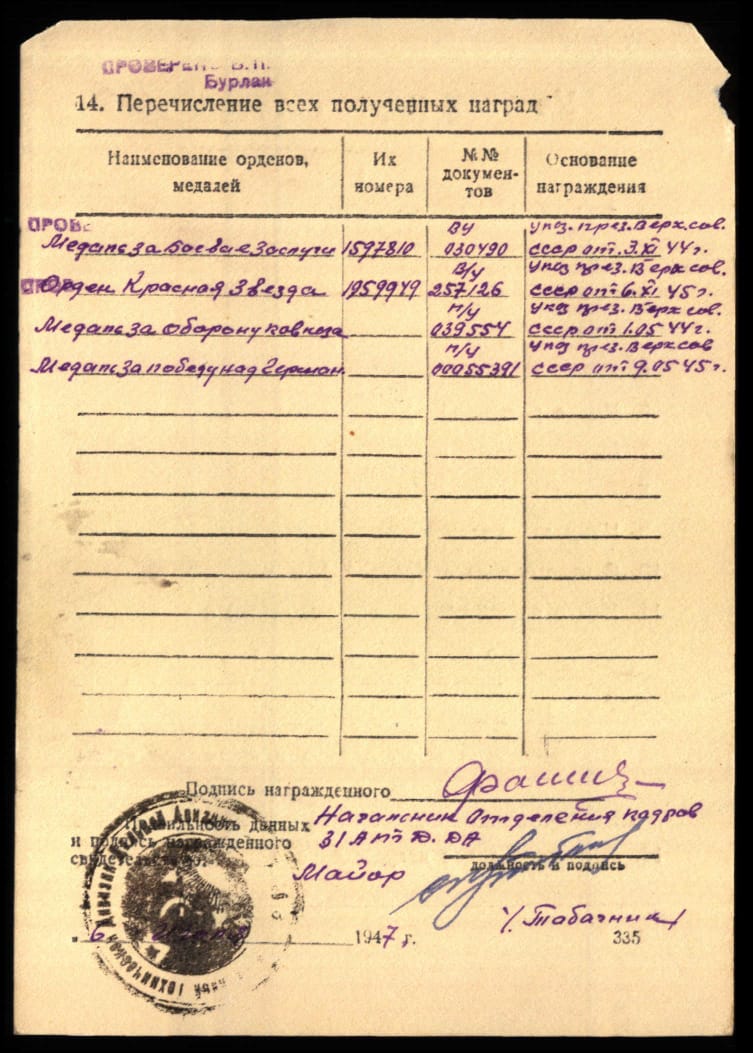 ПРОВЕРЕНО В.П.
Бурлак
14. Перечисление всех полученных наград
Наименование орденов, медалей
Их номера
№№ документов
Основание награждения
ПРОВЕ
Медаль за боевые заслуги 1597810 в/у 030490 указ. през. Верх. сов. СССР от 3.XI 44 г.
Орден Красная Звезда 1959949 в/у 257126 указ през. Верх сов. СССР от 6.XI 45 г.
Медаль за оборону Кавказа п/у 039554 указ през. Верх. сов. СССР от 1.05 44 г.
Медаль за победу над Герман. п/у 0055391 указ през. Верх сов СССР от 9.05 45 г.
Подпись награжденного
Правильность данных
и подпись награжденного
свидетельствую:
Начальник отделения кадров
31 Ат Д. ДА
должность и подпись
Майор
/Табачник/
6 1947 г.
335